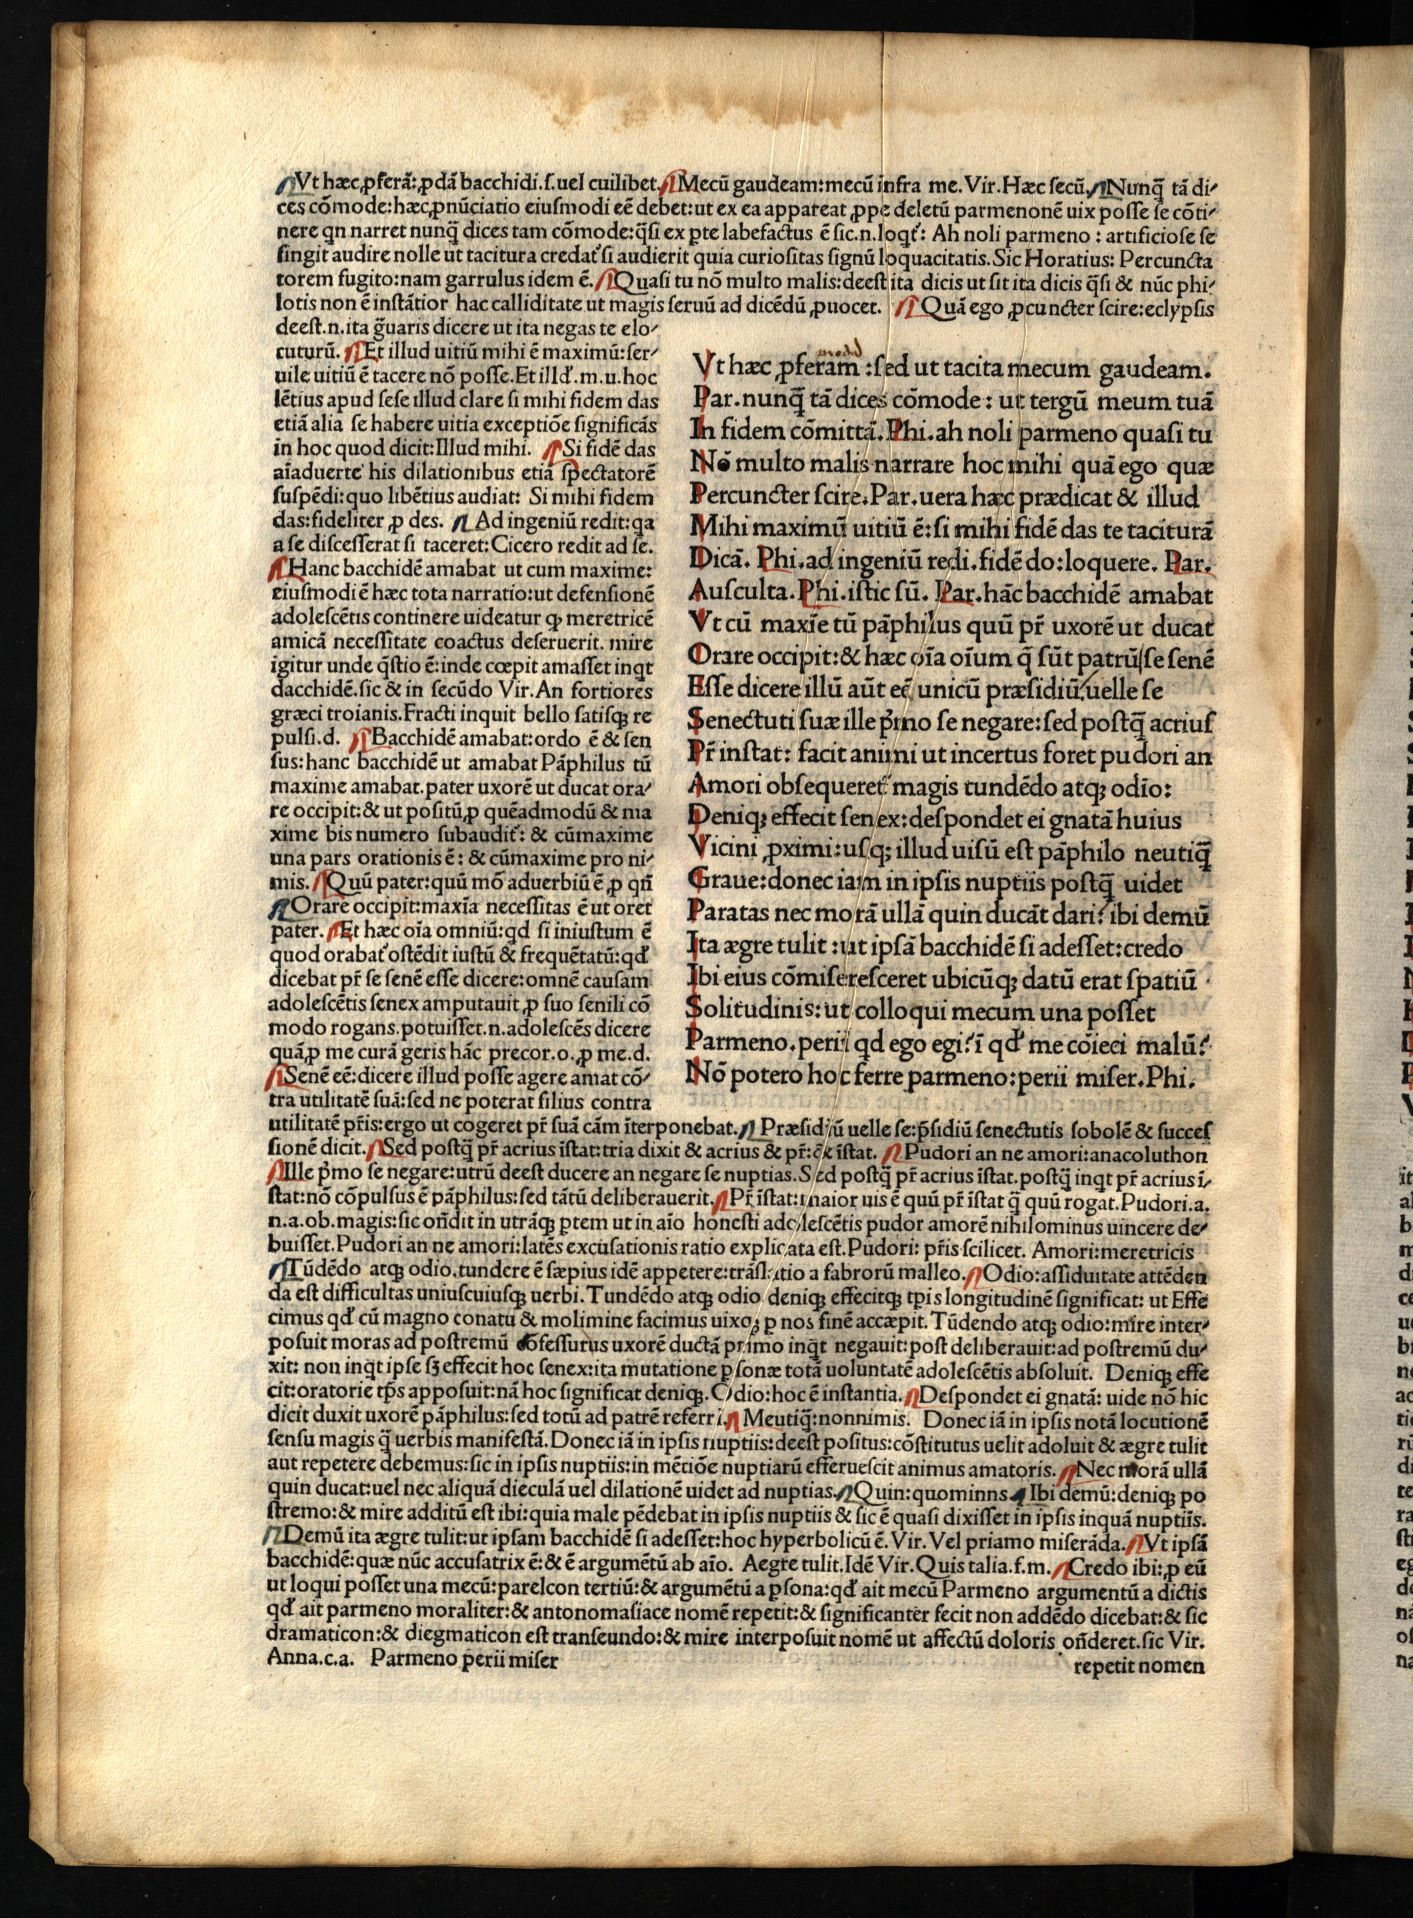 Vt hæc ꝓferā: ꝓdā bacchidi.ſ.uel cuilibet. Mecū gaudeam:mecū infra me. Vir. Hæc ſecū. Nunq̄ tā di-
ces cōmode:hæc ꝓnūciatio eiuſmodi eē debet:ut ex ea appareat ꝓpe deletū parmenonē uix poſſe ſe cōti-
nere qn narret nunq̄ dices tam cōmode:q̄ſi ex ꝑte labefactus ē ſic.n.loqt̉: Ah noli parmeno : artificioſe ſe
ſingit audire nolle ut tacitura credat̉ ſi audierit quia curioſitas ſignū loquacitatis. Sic Horatius: Percuncta
torem fugito:nam garrulus idem ē. Quaſi tu nō multo malis:deeſt ita dicis ut ſit ita dicis q̄ſi & nūc phi-
lotis non ē inſtātior hac calliditate ut magis ſeruū ad dicēdū ꝓuocet. Quā ego ꝑcuncter ſcire:eclypſis
deeſt.n.ita g̃uaris dicere ut ita negas te elo-
cuturū. Et illud uitiū mihi ē maximū:ſer-
uile uitiū ē tacere nō poſſe. Et illđ.m.u.hoc
lētius apud ſeſe illud clare ſi mihi fidem das
etiā alia ſe habere uitia exceptiōe ſignificās
in hoc quod dicit:Illud mihi. Si fidē das
aīaduerte his dilationibus etiā ſpectatorē
ſuſpēdi:quo libētius audiat: Si mihi fidem
das:fideliter ꝓ des. Ad ingeniū redit:qa
a ſe diſceſſerat ſi taceret:Cicero redit ad ſe.
Hanc bacchidē amabat ut cum maxime:
eiuſmodi ē hæc tota narratio:ut defenſionē
adoleſcētis continere uideatur ꝙ meretricē
amicā neceſſitate coactus deſeruerit. mire
igitur unde q̄ſtio ē:inde cœpit amaſſet inqt
dacchidē.ſic & in ſecūdo Vir. An fortiores
græci troianis. Fracti inquit bello ſatiſqꝫ re
pulſi.d. Bacchidē amabat:ordo ē & ſen
ſus:hanc bacchidē ut amabat Pāphilus tū
maxime amabat.pater uxorē ut ducat ora-
re occipit:& ut poſitū ꝓ quēadmodū & ma
xime bis numero ſubaudit̉: & cūmaxime
una pars orationis ē: & cūmaxime pro ni-
mis. Quū pater:quū mō aduerbiū ē ꝓ qn̄
Orare occipit:maxīa neceſſitas ē ut oret
pater. Et hæc oīa omniū:qd ſi iniuſtum ē
quod orabat̉ oſtēdit iuſtū & frequētatū:qđ
dicebat pr̄ ſe ſenē eſſe dicere:omnē cauſam
adoleſcētis ſenex amputauit ꝓ ſuo ſenili cō
modo rogans.potuiſſet.n.adoleſcēs dicere
quā ꝓ me curā geris hāc precor.o.ꝓ me.d.
Senē eē:dicere illud poſſe agere amat cō-
tra utilitatē ſuā:ſed ne poterat filius contra
Vt hæc ꝓferam :ſed ut tacita mecum gaudeam.
Par.nunq̄ tā dices cōmode: ut tergū meum tuā
In fidem cōmittā. Phi.ah noli parmeno quaſi tu
Nō multo malis narrare hoc mihi quā ego quæ
Percuncter ſcire. Par.uera hæc prædicat & illud
Mihi maximū uitiū ē:ſi mihi fidē das te taciturā
Dicā. Phi.ad ingeniū redi.fidē do:loquere. Par.
Auſculta. Phi.iſtic ſū. Par.hāc bacchidē amabat
Vt cū maxīe tū pāphilus quū pr̄ uxorē ut ducat
Orare occipit:& hæc oīa oīum q̄ ſūt patrū ſe ſenē
Eſſe dicere illū aūt eē unicū præſidiū:uelle ſe
Senectuti ſuæ ille p̉mo ſe negare:ſed poſtq̄ acriuſ
Pr̄ inſtat: facit animi ut incertus foret pudori an
Amori obſequeret̉ magis tundēdo atqꝫ odio:
Deniqꝫ effecit ſenex:deſpondet ei gnatā huius
Vicini ꝓximi:uſqꝫ illud uiſū eſt pāphilo neutiq̄
Graue:donec iam in ipſis nuptiis poſtq̄ uidet
Paratas nec morā ullā quin ducāt dari? ibi demū
Ita ægre tulit :ut ipſā bacchidē ſi adeſſet:credo
Ibi eius cōmiſereſceret ubicūqꝫ datū erat ſpatiū
Solitudinis:ut colloqui mecum una poſſet
Parmeno.perii qd ego egi? ī qđ me cōieci malū?
Nō potero hoc ferre parmeno:perii miſer. Phi.
utilitatē pr̄is:ergo ut cogeret pr̄ ſuā cām īterponebat. Præſidiū uelle ſe:p̄ſidiū ſenectutis ſobolē & ſucceſ
ſionē dicit. Sed poſtq̄ pr̄ acrius īſtat:tria dixit & acrius & pr̄:& īſtat. Pudori an ne amori:anacoluthon
Ille p̉mo ſe negare:utrū deeſt ducere an negare ſe nuptias. Sed poſtq̄ pr̄ acrius īſtat.poſtq̄ inqt pr̄ acrius ī-
ſtat:nō cōpulſus ē pāphilus:ſed tātū deliberauerit. Pr̄ īſtat:maior uis ē quū pr̄ īſtat q̄ quū rogat. Pudori.a.
n.a.ob.magis:ſic on̄dit in utrāqꝫ ꝑtem ut in aīo honeſti adoleſcētis pudor amorē nihilominus uincere de-
buiſſet. Pudori an ne amori:latēs excuſationis ratio explicata eſt. Pudori: pr̄is ſcilicet. Amori:meretricis
Tūdēdo atqꝫ odio.tundere ē ſæpius idē appetere:trāſlatio a fabrorū malleo. Odio:aſſiduitate attēden
da eſt difficultas uniuſcuiuſqꝫ uerbi. Tundēdo atqꝫ odio deniqꝫ effecitqꝫ tꝑis longitudinē ſignificat: ut Effe
cimus qđ cū magno conatu & molimine facimus uixqꝫ ꝑ nos finē accæpit. Tūdendo atqꝫ odio:mire inter-
poſuit moras ad poſtremū cōfeſſurus uxorē ductā primo inq̉t negauit:poſt deliberauit:ad poſtremū du-
xit: non inq̉t ipſe ſꝫ effecit hoc ſenex:ita mutatione ꝑſonæ totā uoluntatē adoleſcētis abſoluit. Deniqꝫ effe
cit:oratorie tꝑs appoſuit:nā hoc ſignificat deniqꝫ. Odio:hoc ē inſtantia. Deſpondet ei gnatā: uide nō hic
dicit duxit uxorē pāphilus:ſed totū ad patrē referri. Meutiq̄:nonnimis. Donec iā in ipſis notā locutionē
ſenſu magis q̄ uerbis manifeſtā. Donec iā in ipſis nuptiis:deeſt poſitus:cōſtitutus uelit adoluit & ægre tulit
aut repetere debemus:ſic in ipſis nuptiis:in mētiōe nuptiarū efferueſcit animus amatoris. Nec morā ullā
quin ducat:uel nec aliquā dieculā uel dilationē uidet ad nuptias. Quin:quominns. Ibi demū:deniqꝫ po
ſtremo:& mire additū eſt ibi:quia male pēdebat in ipſis nuptiis & ſic ē quaſi dixiſſet in ipſis inquā nuptiis.
Demū ita ægre tulit:ut ipſam bacchidē ſi adeſſet:hoc hyperbolicū ē. Vir. Vel priamo miſerāda. Vt ipſā
bacchidē:quæ nūc accuſatrix ē:& ē argumētū ab aīo. Aegre tulit. Idē Vir. Quis talia.f.m. Credo ibi: ꝓ eū
ut loqui poſſet una mecū:parelcon tertiū:& argumētū a ꝑſona:qđ ait mecū Parmeno argumentū a dictis
qđ ait parmeno moraliter:& antonomaſiace nomē repetit:& ſignificanter fecit non addēdo dicebat:& ſic
dramaticon:& diegmaticon eſt tranſeundo:& mire interpoſuit nomē ut affectū doloris on̄deret.ſic Vir.
Anna.c.a. Parmeno perii miſer
repetit nomen